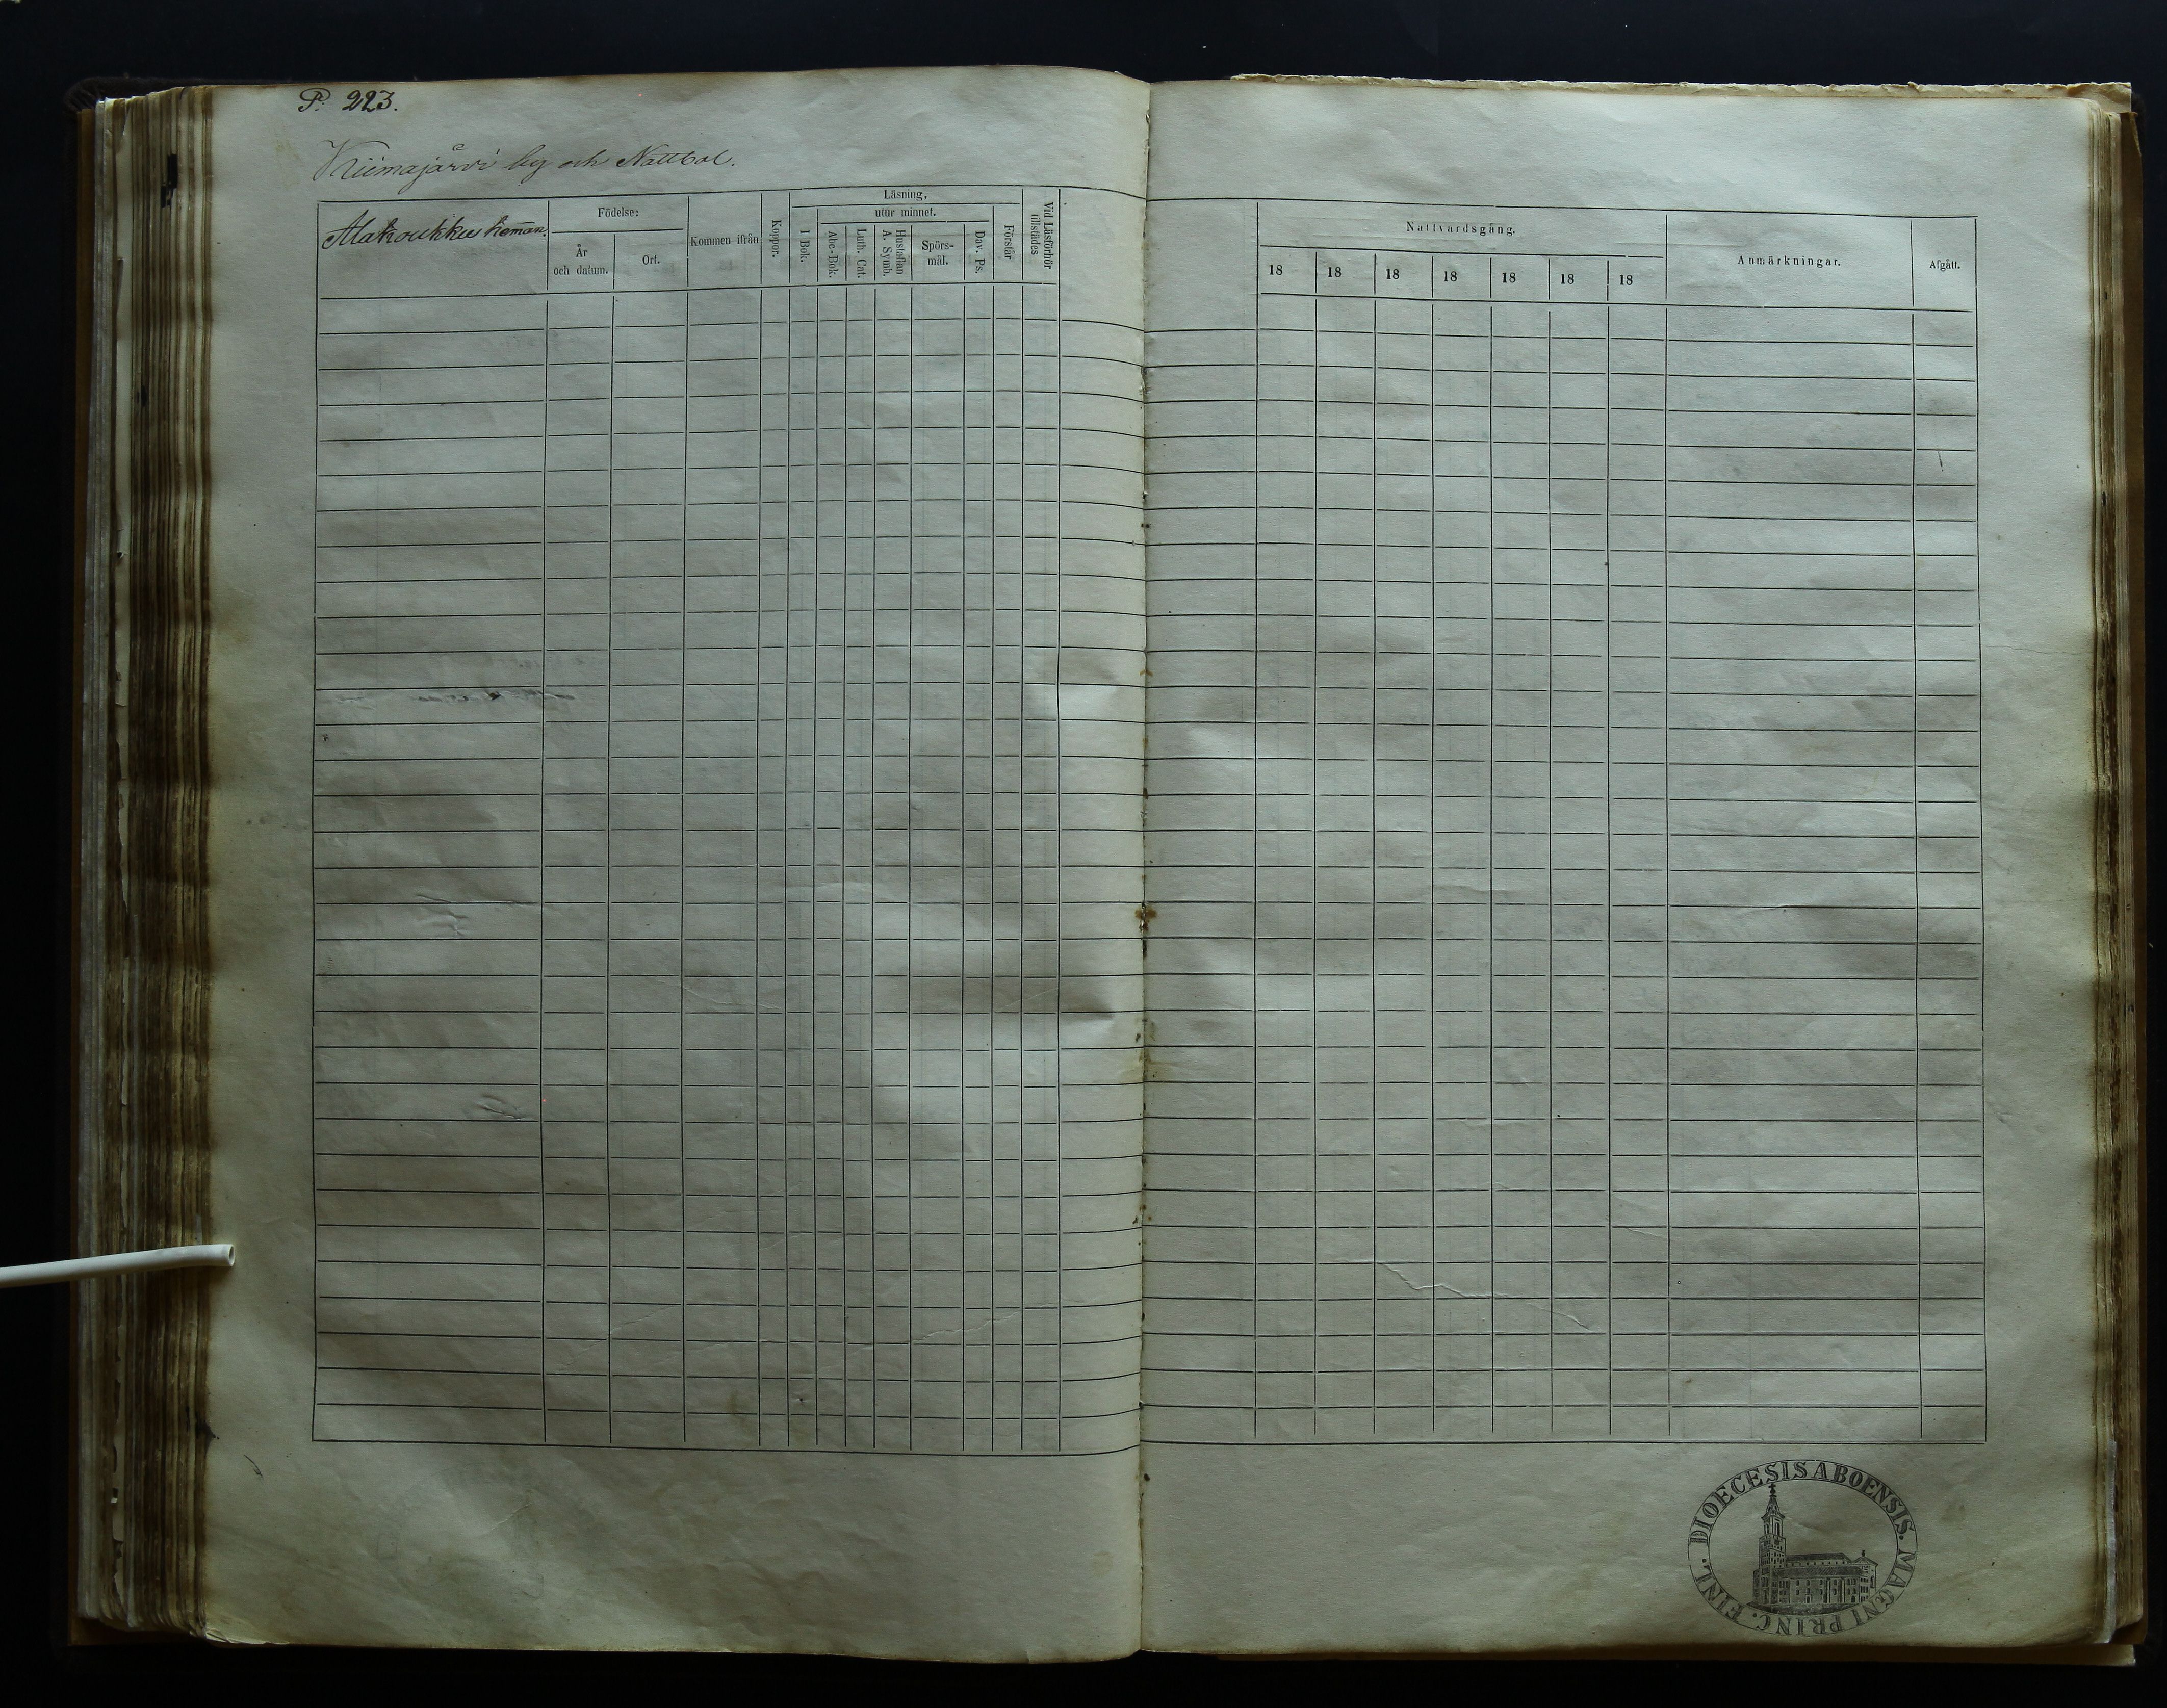 P. 223.
Kiimajärvi by och Nattbol.
Makoukku heman.
Födelse:
År
och datum.
Ort.
Kommen ifrån
Koppor.
Läsning,
utur minnet.
I Bok.
Abc-Bok.
Luth. Cat.
Hustaflan
A. Symb.
Spörs-
mål.
Dav. Ps.
Förstår
Vid Läsförhör
tillstädes
Nattvardsgång.
18 18 18 18 18 18 18
Anmärkningar.
Afgått.
DIOECESIS ABOENSIS. MAGNI PRINC. FINL.